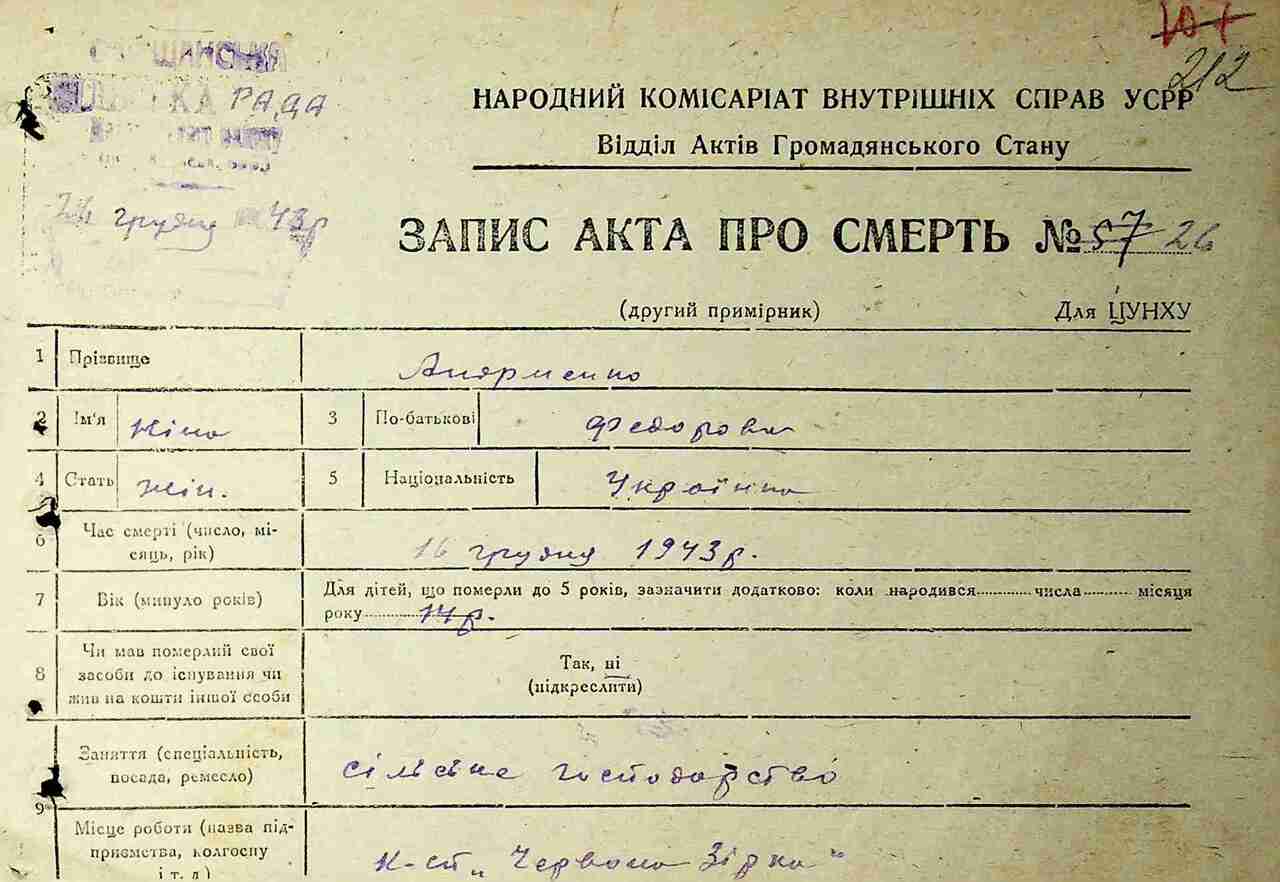 107
212
РАДА
НАРОДНИЙ КОМІСАРІАТ ВНУТРІШНІХ СПРАВ УСРР
Відділ Актів Громадянського Стану
грудня 43р
ЗАПИС АКТА ПРО СМЕРТЬ № 57 26
(другий примірник) Для ЦУНХУ
1 Прізвище
2 Ім'я Ніна 3 По-батькові Федоровн
4 Стать жін. 5 Національність Українка
6 Час смерті (число, мі-
сяць, рік) 16 грудня 1943р.
7 Вік (минуло років) Для дітей, що померли до 5 років, зазначити додатково: коли народився............числа.......... місяця
року.............14р.
8 Чи мав померлий свої
засоби до існування чи
жив на кошти іншої особи
Так, ні
(підкреслити)
9 Заняття (спеціальність,
посада, ремесло) сільське господарство
Місце роботи (назва під-
приємства, колгоспу
і т. д) К-сп „Червона Зірка"